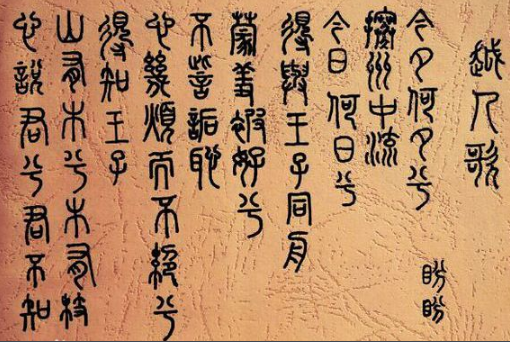 越人歌
今夕何夕兮
搴洲中流
今日何日兮
得與王子同舟
蒙羞被好兮
不訾詬恥
心幾煩而不絕兮
得知王子
山有木兮木有枝
心說君兮君不知
盼盼